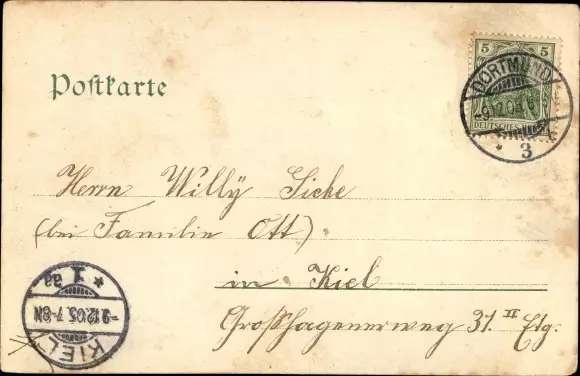 Postkarte
5 5
DEUTSCHES
DORTMUND
-9.12.05
* 3 c
Herrn Willÿ Sicke
(bei Familie Ott)
in Kiel
Großhagenerweg 31. II Etg.
KIEL
-9.12.05. 7-8N
* 1 aa